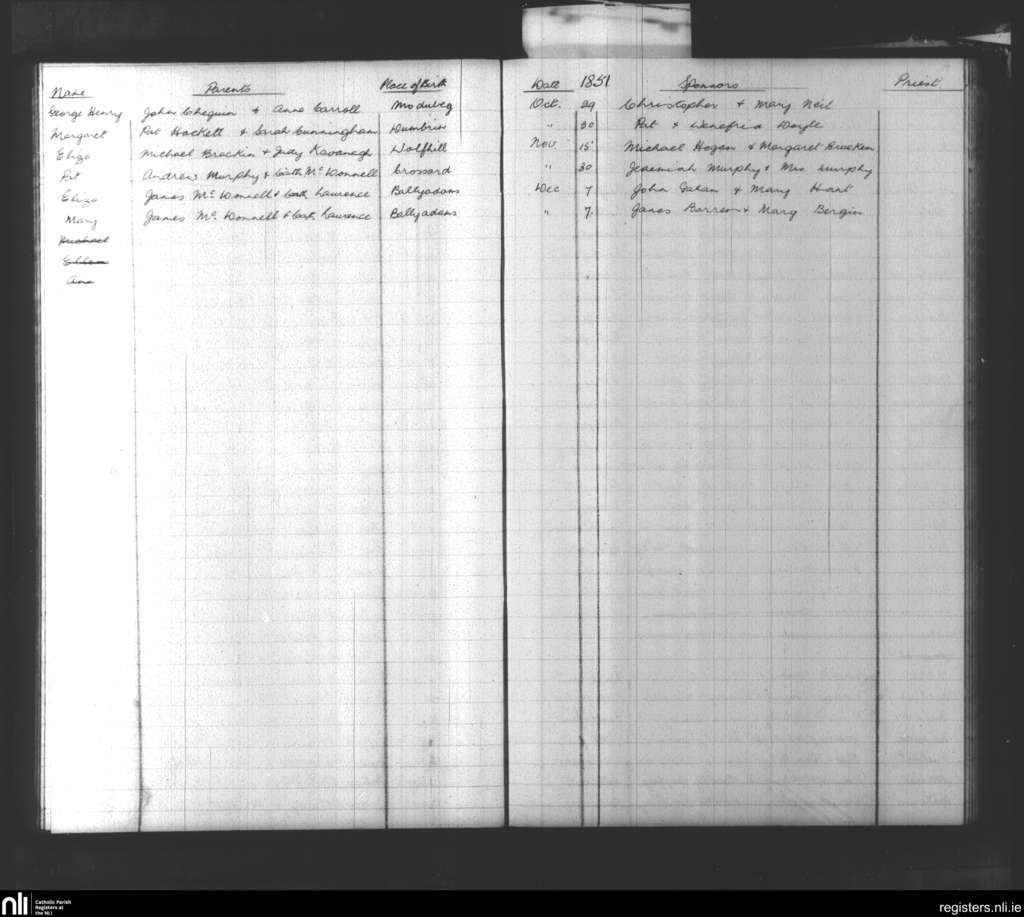 Name Parents Place of Birth Date 1851 Sponsors Priest
George Henry John Cheguin & Anne Carroll Modubeg Oct. 29 Christopher & Mary Neil
Margaret Pat Hackett & Sarah Cunningham Dumbrin " 30 Pat & Wenefrid Doyle
Eliza Michael Brackin & Judy Kavanagh Wolfhill Nov. 15 Michael Hogan & Margaret Bracken
Pat Andrew Murphy & Cath Mc Donnell Crossard " 30 Jeremiah Murphy & Mrs Murphy
Eliza James Mc Donnell & Cath Lawrence Ballyadams Dec 7 John & Mary Hart
Mary James Mc Donnell & Cath Lawrence Ballyadams " 7. James Barren & Mary Bergin
Michael
Ellen
Ann
nli Catholic Parish
Registers at
the NLI
registers.nli.ie